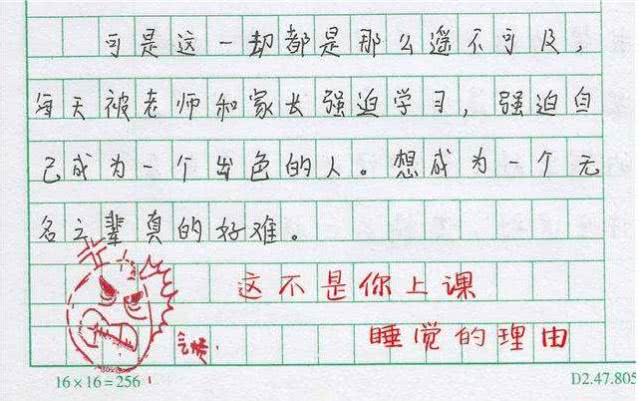 可是这一却都是那么遥不可及，
每天被老师和家长强迫学习，强迫自
己成为一个出色的人。想成为一个无
名之辈真的好难。
这不是你上课
睡觉的理由
气愤.
16×16=256
D2.47.805